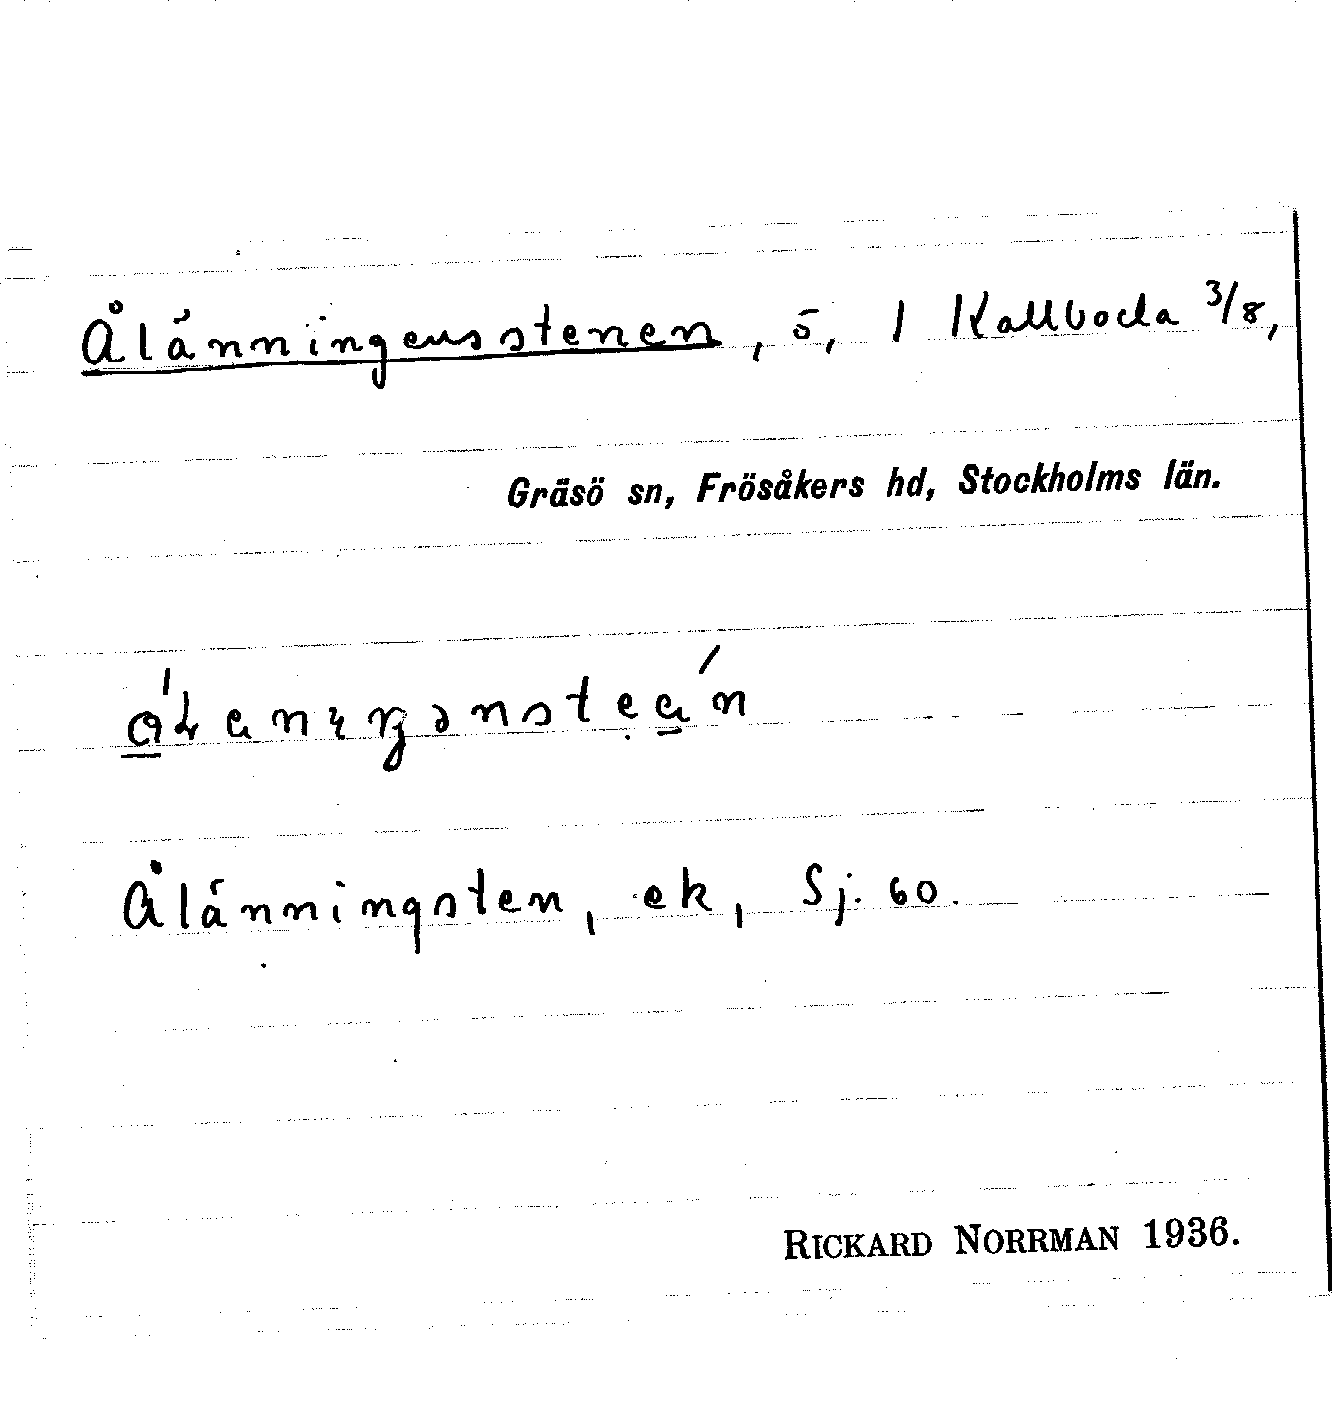 Ålänningensstenen, ö, 1 Kallboda 3/8,
Gräsö sn, Frösåkers hd, Stockholms län.
Ålänningsten, ek, Sj. 60.
RICKARD NORRMAN 1936.